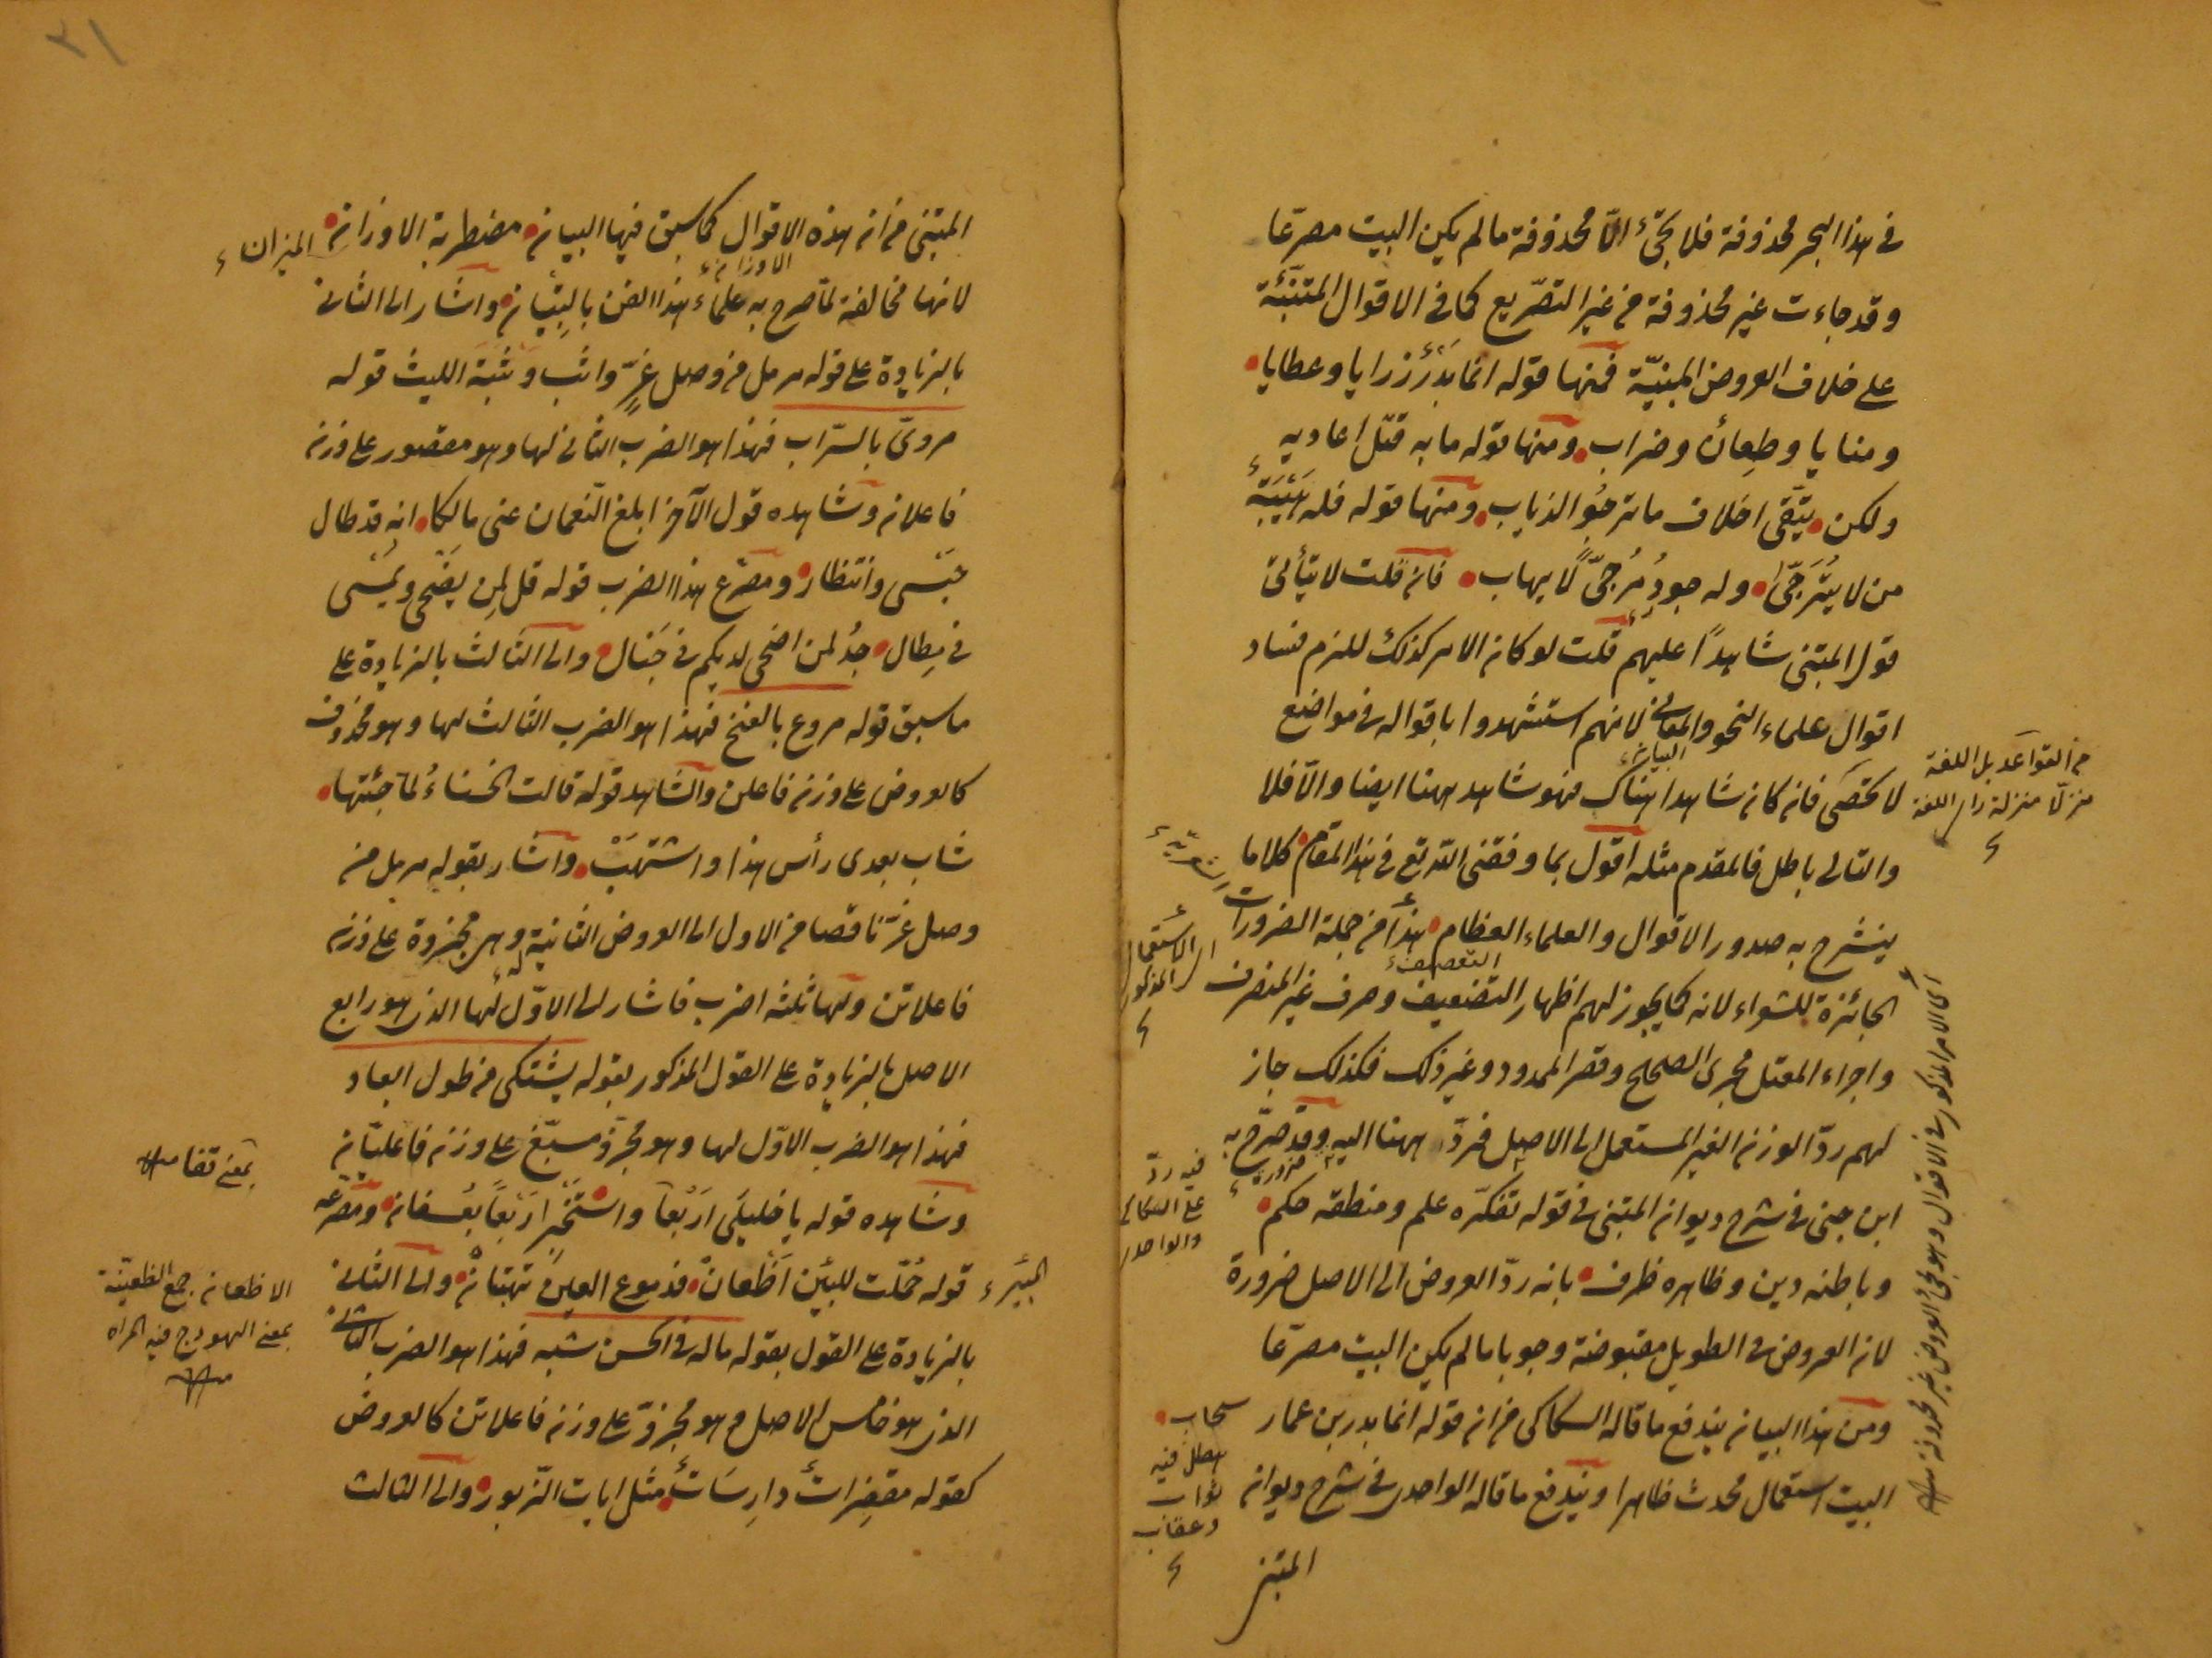 في هذا البحر محذوفة فلا يجئ الّا محذوفة مالم يكن البيت مصرّعا
وقد جاءت غير محذوفة من غير التصريع كما في الاقوال المتنبّئة
على خلاف العروض المبنيّة فمنها قوله انما بَدْرُ رزايا وعطايا
ومنايا وطِعانٌ وضراب ومنها قوله ما به قتل اعاديه
ولكن يتّقى اخلاف ما ترجوُ الذياب ومنها قوله فله هَيْبَةُ
من لا يُتَرجّىٰ وله جودُ مُرجّىً لا يهاب فان قلت لا يتأتى
قول المتنبى شاهدًا عليهم قلت لو كان الامر كذلك للزم فساد
اقوال علماء النحو والمعانى لانهم استشهدوا باقواله في مواضع
البيان
لا تحصى فان كان شاهدا هناك فهو شاهد ههنا ايضا والّا فلا
والتالى باطل فالمقدم مثله اقول بما وفقنى الله تع في هذا المقام كلاما
ينشرح به صدور الاقوال والعلماء العظام هذا من جملة الضرورات
الجائزة للشعراء لانه كما يجوز لهم اظهار التضعيف وصرف غير المنصرف
واجراء المعتل مجرى الصحيح وقصر الممدود وغير ذلك فكذلك جاز
لهم ردّ الوزن الغير المستعمل الى الاصل فردّ ههنا اليه وقد صرّح به
ضرورة
ابن جنى في شرح ديوان المتنبى في قوله تفكّره علم ومنطقه حكم
وباطنه دين وظاهره ظرف بانه ردّ العروض الى الاصل ضرورة
لان العروض في الطويل مقبوضة وجوبا مالم يكن البيت مصرّعا
ومن هذا البيان يندفع ما قاله السكاكى من ان قوله انما بدر بن عمار سحاب
البيت استعمال محدث ظاهرا ويندفع ما قاله الواحدى في شرح ديوان
المتنبى
من القواعد بل اللغة
منزلا منزلة
اى الامر المذكور في الاقوال وهو مجئ العروض غير محذوفة
الاستعمال
المذكور
فيه ردّ
على السكاكى
والواحدى
هطل فيه
ثواب
وعقاب
٣١
المتنبى من ان هذه الاقوال كما سبق فيها البيان مضطربة الاوزان
الميزان
الاوزان
لانها مخالفة لما صرح به علماء هذا الفن بالتِبْيان واشار الى الثانى
بالزيادة على قوله مرمل من وصل غِرٍّ واثب وثبة الليث قوله
مروىّ بالسّراب فهذا هو الضرب الثانى لها وهو مقصور على وزن
فاعلان وشاهده قول الآخر ابلغ النعمان عنى مالكا انه قد طال
حَبْسى وانتظار ومصرّع هذا الضرب قوله قل لِمن يضحى ويمسى
في مِطال جُدْ لمن اضحى لديكم في خَبَال والى الثالث بالزيادة على
ماسبق قوله مروع بالفخ فهذا هو الضرب الثالث لها وهو محذوف
كالعروض على وزن فاعلن والشاهد قوله قالت الخنساءُ لما جئتها
شاب بعدى رأس هذا واشتهبْ واشار بقوله مرمل من
وصل غرّ ناقصا من الاول الى العروض الثانية وهى مجزوة على وزن
فاعلاتن ولها ثلثه اضرب فاشار الى الاوّل لها الذى هو رابع
الاصل بالزيادة على القول المذكور بقوله يشتكى من طول ابعاد
فهذا هو الضرب الاوّل لها وهو مجزوّ مسبّغ على وزن فاعليّان
وشاهده قوله يا خليلَىّ اربَعا واستخبِرا رَبْعاً بعُسفان ومصرّعه
قوله حُمّلت للبيْن اَظْعانْ فدموع العين تهتانْ والى الثانى
بالزيادة على القول بقوله ماله في الحسن شبه فهذا هو الضرب الثانى
الذى هو خامس الاصل وهو مجزوّ على وزن فاعلاتن كالعروض
كقوله مقفِراتٌ دارِسَاتٌ مثل ايات الزّبور والى الثالث
بمعنى قفا
الاظعان جمع الظعينة
بمعنى الهودج فيه المراه